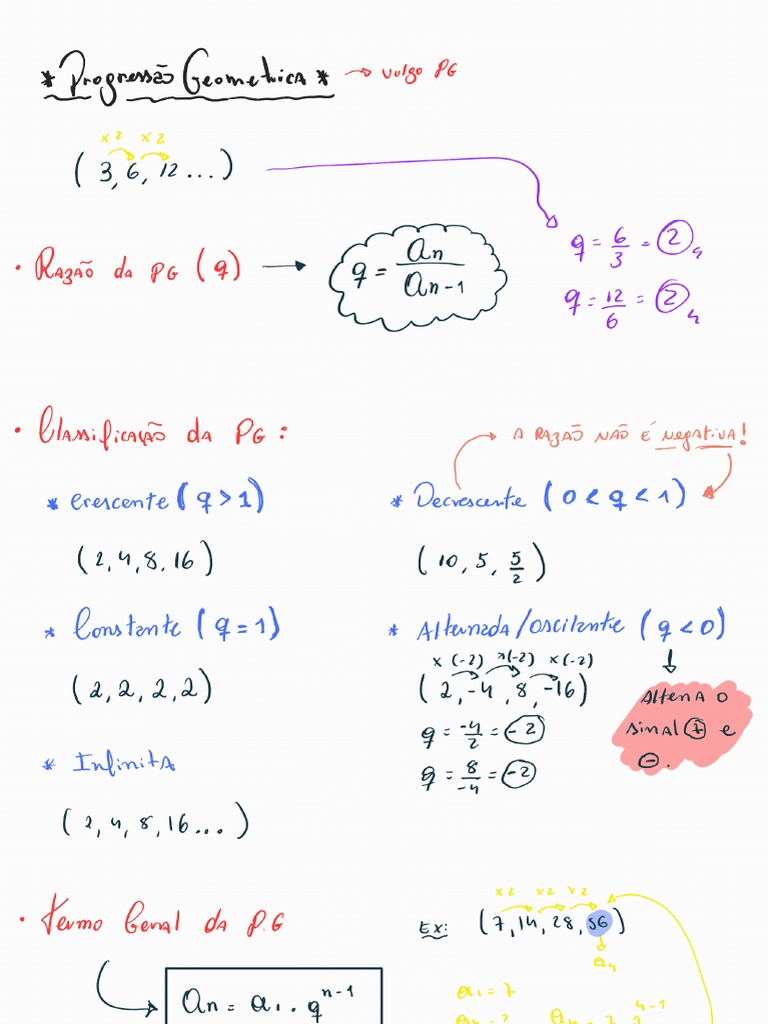 * Progressão Geometrica * → vulgo PG
x2 x2
(3, 6, 12...)
q = 6/3 = 2
• Razão da PG (q) → q = an/an-1
q = 12/6 = 2
• Classificação da PG:
A razão não é negativa!
* Crescente (q > 1)
* Decrescente (0 < q < 1)
(2, 4, 8, 16)
(10, 5, 5/2)
* Constante (q = 1)
* Alternada/oscilante (q < 0)
x (-2) x (-2) x (-2)
(2, 2, 2, 2)
(2, -4, 8, -16)
Altena o
sinal + e
-.
q = -4/2 = -2
q = 8/-4 = -2
* Infinita
(2, 4, 8, 16...)
• Termo Geral da P.G
x2 x2 x2
Ex: (7, 14, 28, 56)
a4
an = a1 . q^n-1
a1 = 7